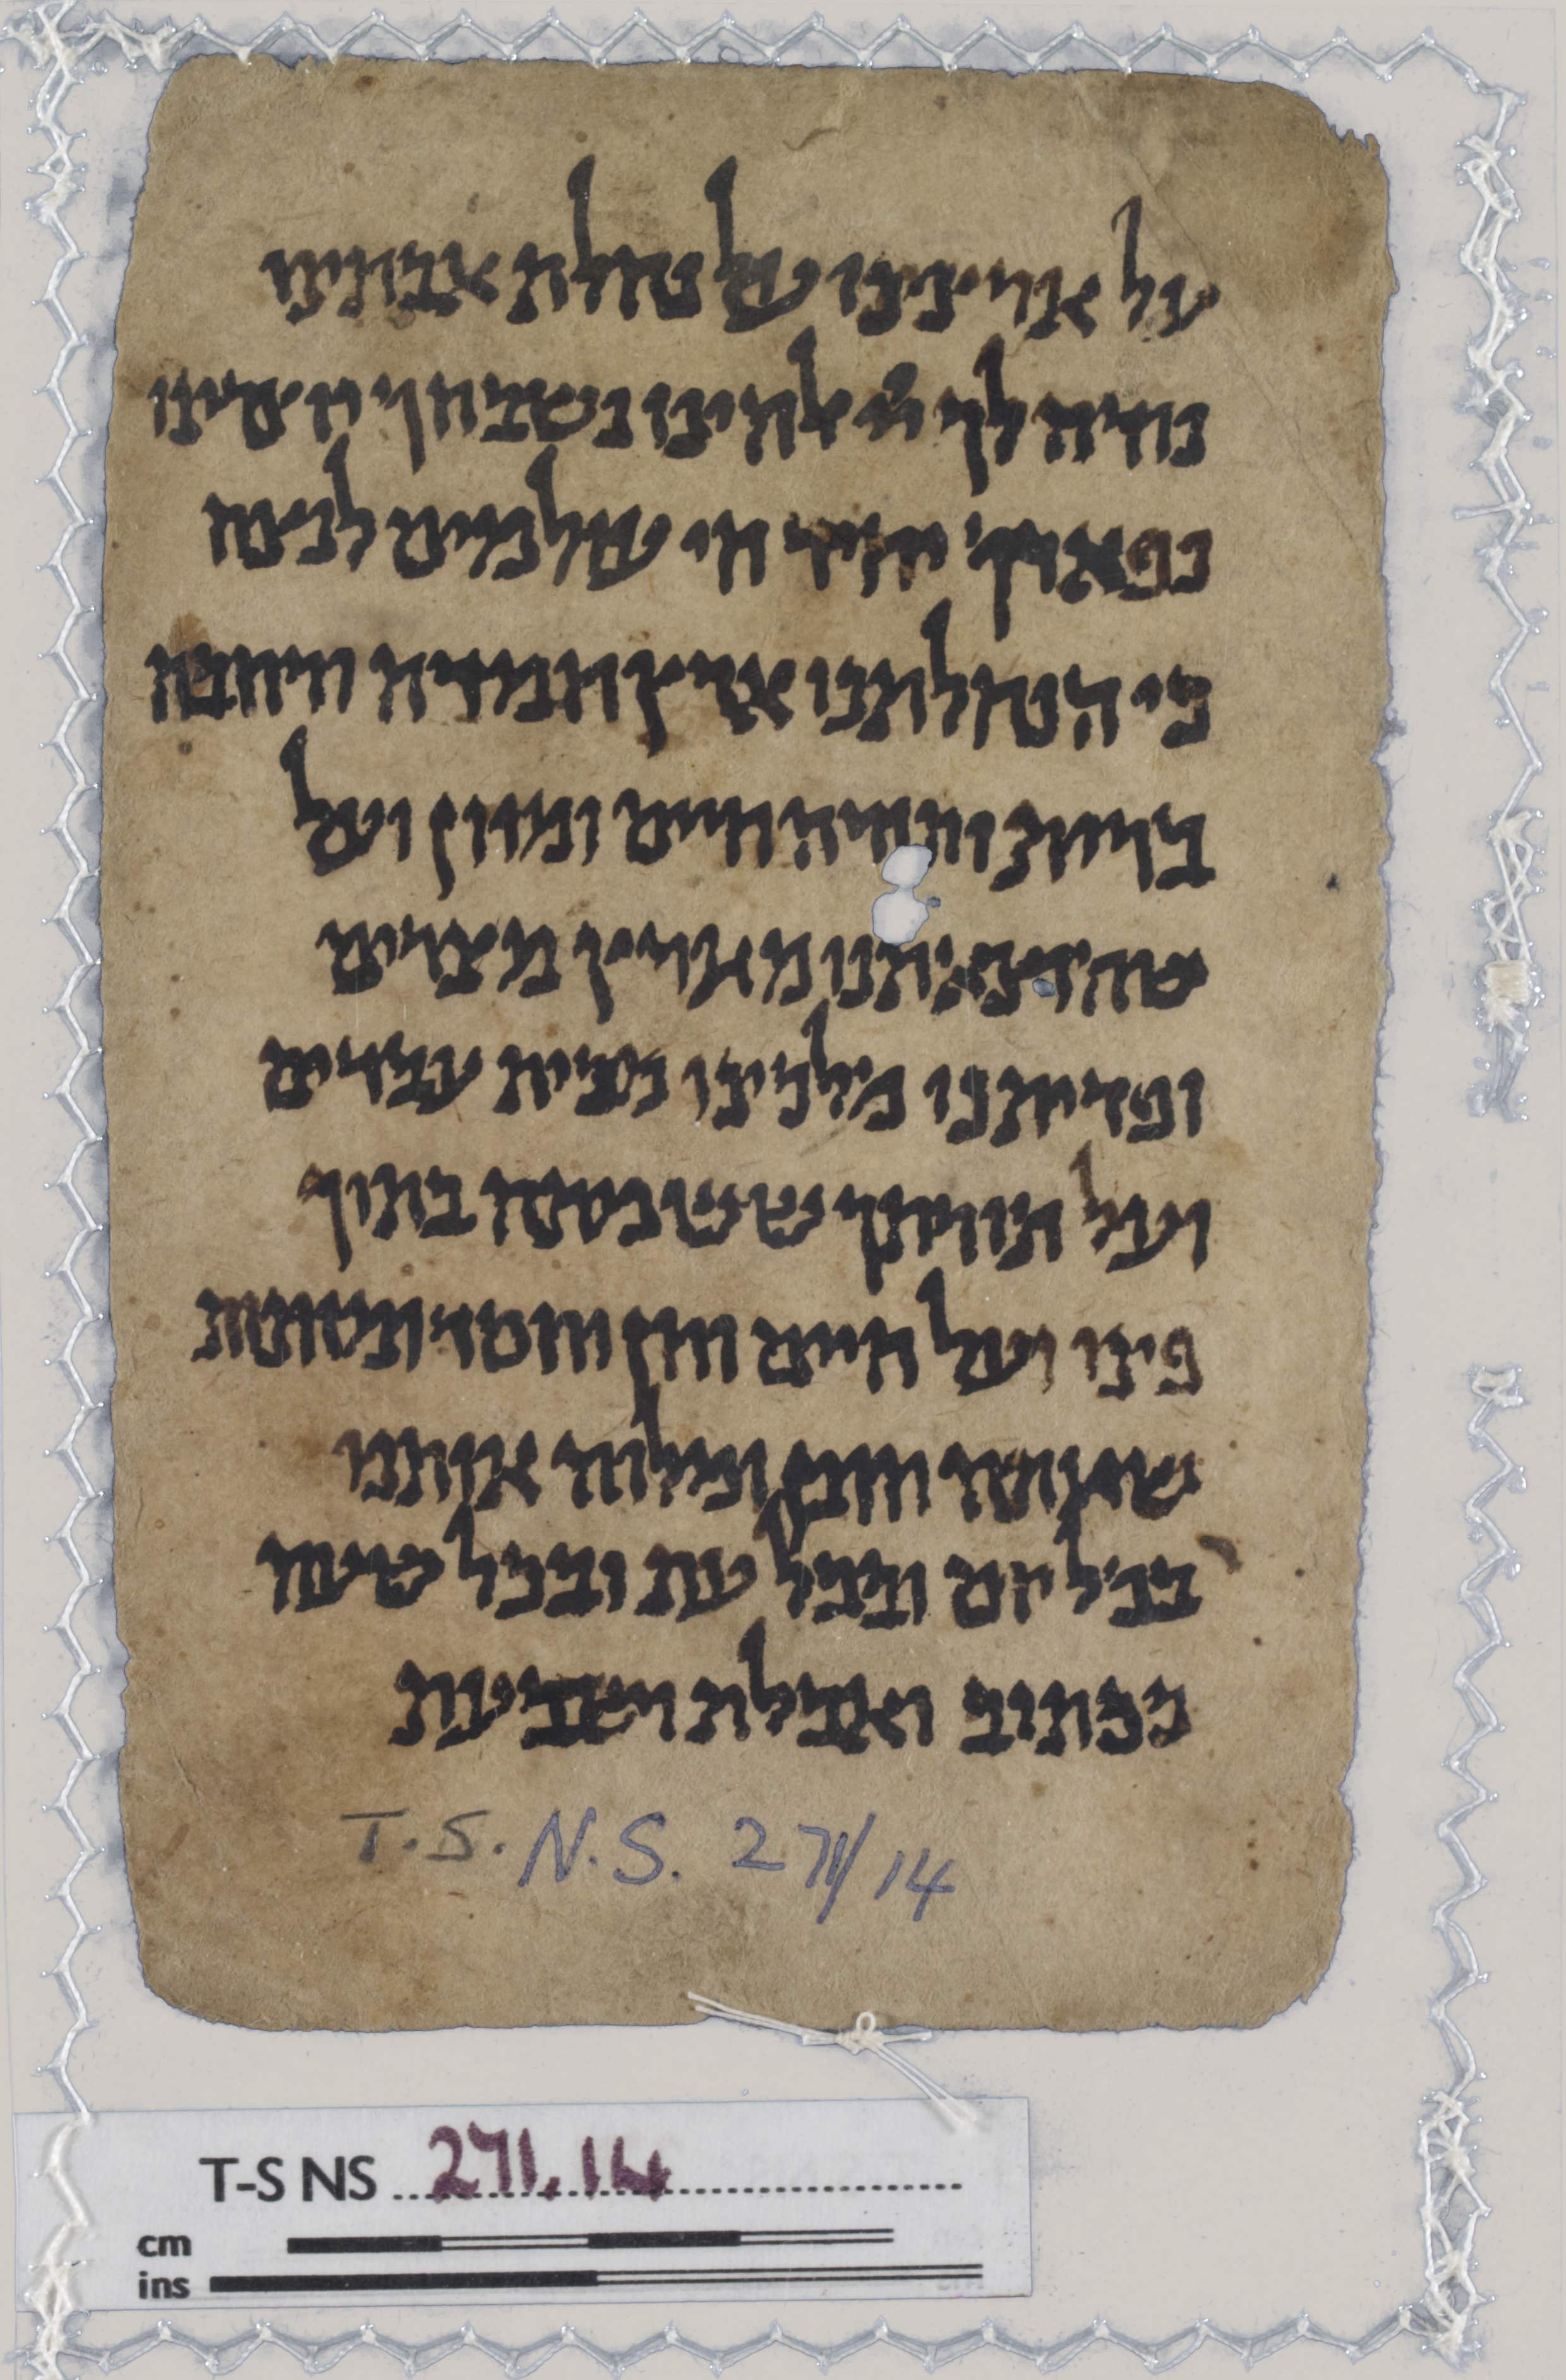 על ארצינו ועל נחלת אבותינו
נודה לך יי אלהינו נשבחך יוצרינו
נפארך יחיד חי עולמים לנצח
כי הנחלתנו ארץ חמדה טובה
ברית ותורה חיים ומזון ועל
שהוצאיתנו מארץ מצרים
ופדיתנו מלכינו מבית עבדים
ועל תורתך שמנסתה בתוך
פינו ועל חיים חן וחסד
שאתה חונן אותנו
בכל יום ובכל עת ובכל שעה
ככתוב ואכלת ושבעת
T.S. N.S. 271/14
T-S NS 271.14
cm
ins